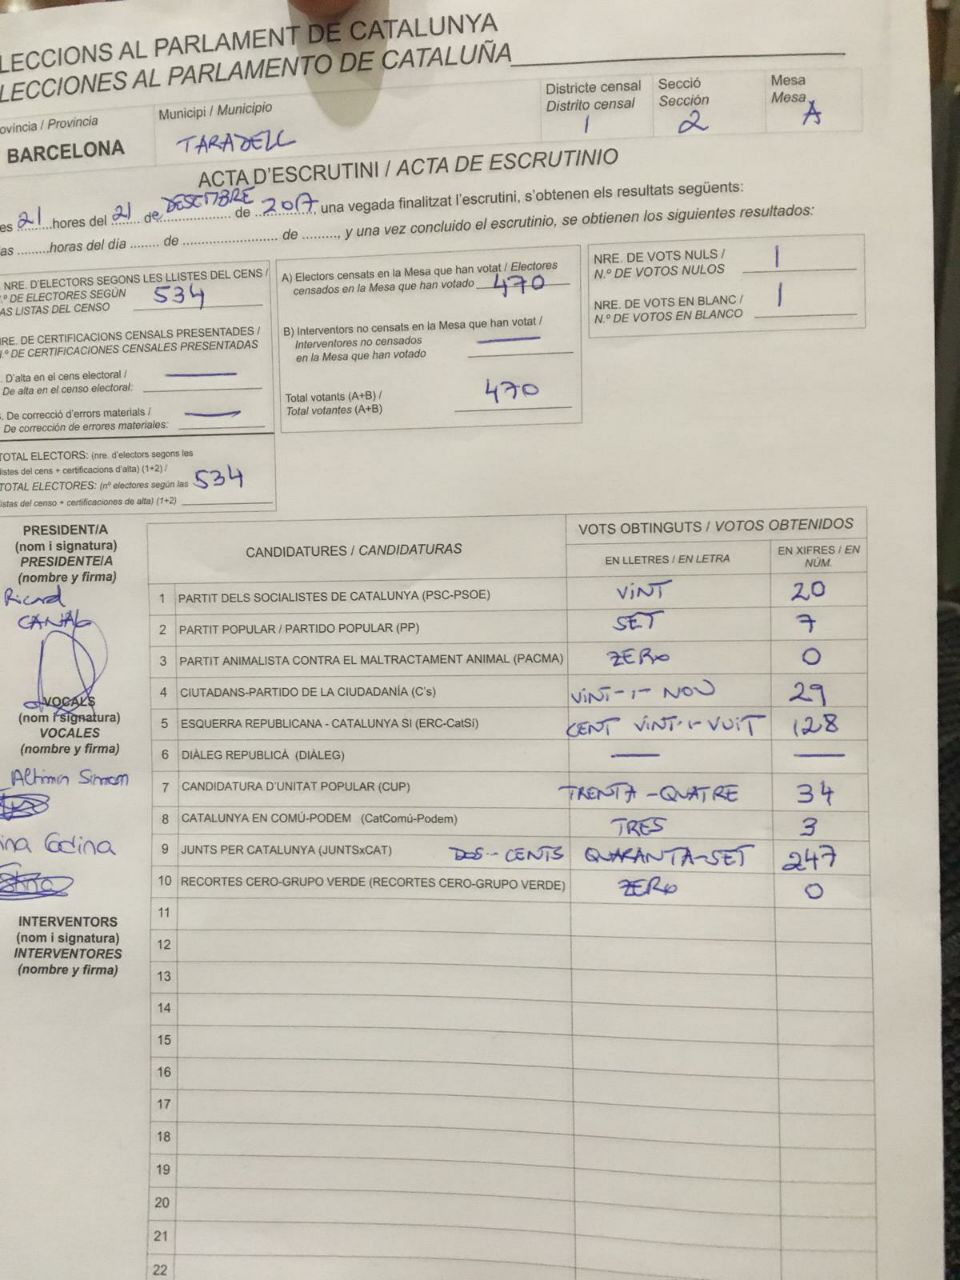 LECCIONS AL PARLAMENT DE CATALUNYA
LECCIONES AL PARLAMENTO DE CATALUÑA
ovíncia / Provincia
BARCELONA
Municipi / Municipio
TARADELL
Districte censal
Distrito censal
1
Secció
Sección
2
Mesa
Mesa
A
ACTA D'ESCRUTINI / ACTA DE ESCRUTINIO
es 21 hores del 21 de DESEMBRE de 2017, una vegada finalitzat l'escrutini, s'obtenen els resultats següents:
as .........horas del día ........ de ............................ de ........., y una vez concluido el escrutinio, se obtienen los siguientes resultados:
NRE. D'ELECTORS SEGONS LES LLISTES DEL CENS /
N.º DE ELECTORES SEGÚN
AS LISTAS DEL CENSO
534
NRE. DE CERTIFICACIONS CENSALS PRESENTADES /
N.º DE CERTIFICACIONES CENSALES PRESENTADAS
. D'alta en el cens electoral /
De alta en el censo electoral:
. De correcció d'errors materials /
De corrección de errores materiales:
TOTAL ELECTORS: (nre. d'electors segons les
listes del cens + certificacions d'alta) (1+2) /
TOTAL ELECTORES: (nº electores según las
listas del censo + certificaciones de alta) (1+2)
534
A) Electors censats en la Mesa que han votat / Electores
censados en la Mesa que han votado
470
B) Interventors no censats en la Mesa que han votat /
Interventores no censados
en la Mesa que han votado
Total votants (A+B) /
Total votantes (A+B)
470
NRE. DE VOTS NULS /
N.º DE VOTOS NULOS
1
NRE. DE VOTS EN BLANC /
N.º DE VOTOS EN BLANCO
1
PRESIDENT/A
(nom i signatura)
PRESIDENTE/A
(nombre y firma)
Ricard
VOCALS
(nom i signatura)
VOCALES
(nombre y firma)
Codina
INTERVENTORS
(nom i signatura)
INTERVENTORES
(nombre y firma)
CANDIDATURES / CANDIDATURAS
VOTS OBTINGUTS / VOTOS OBTENIDOS
EN LLETRES / EN LETRA
EN XIFRES / EN NÚM.
1 PARTIT DELS SOCIALISTES DE CATALUNYA (PSC-PSOE) VINT 20
2 PARTIT POPULAR / PARTIDO POPULAR (PP) SET 7
3 PARTIT ANIMALISTA CONTRA EL MALTRACTAMENT ANIMAL (PACMA) ZERO 0
4 CIUTADANS-PARTIDO DE LA CIUDADANÍA (C's) VINT-I-NOU 29
5 ESQUERRA REPUBLICANA - CATALUNYA SÍ (ERC-CatSí) CENT VINT-I-VUIT 128
6 DIÀLEG REPUBLICÀ (DIÀLEG)
7 CANDIDATURA D'UNITAT POPULAR (CUP) TRENTA-QUATRE 34
8 CATALUNYA EN COMÚ-PODEM (CatComú-Podem) TRES 3
9 JUNTS PER CATALUNYA (JUNTSxCAT) DOS-CENTS QUARANTA-SET 247
10 RECORTES CERO-GRUPO VERDE (RECORTES CERO-GRUPO VERDE) ZERO 0
11
12
13
14
15
16
17
18
19
20
21
22